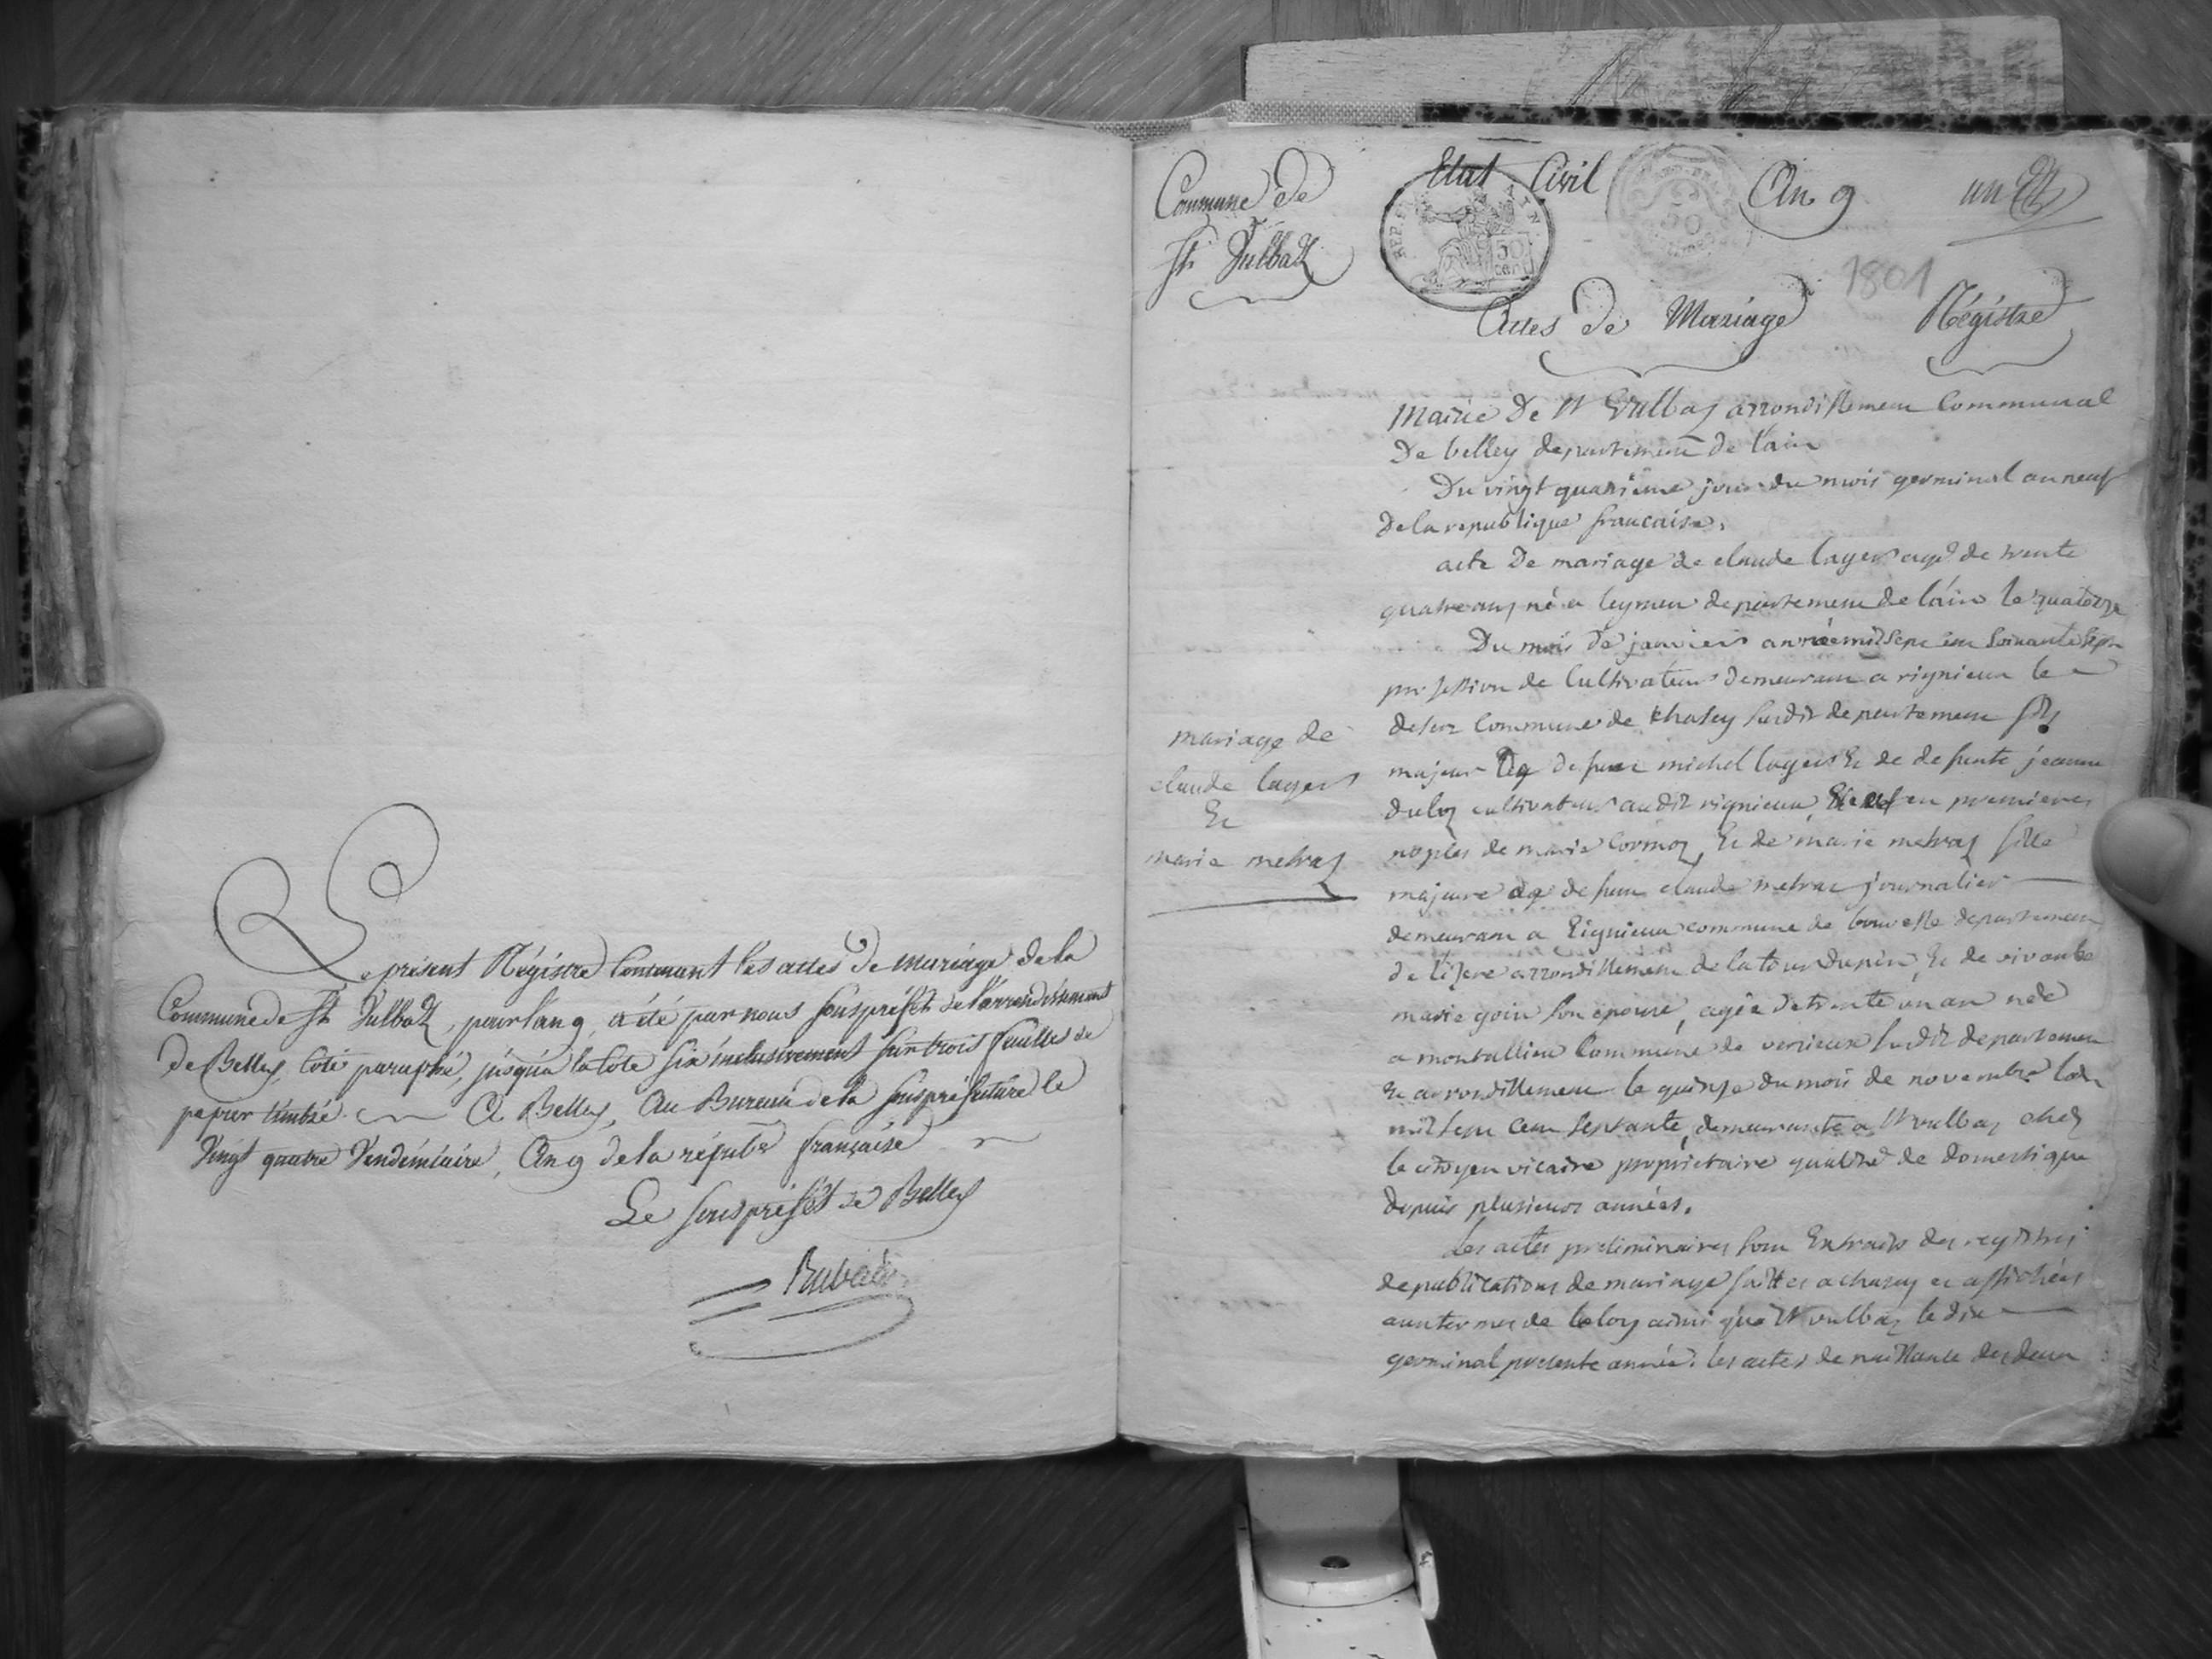 Le présent Régistre Contenant les actes de mariage de la
Commune de St Vulbaz, pour l'an 9, a été par nous souspréfét de l'arrondissement
de Belley, coté paraphé, jusqu'a la cote six inclusivement sur trois feuilles de
papier timbré. A Belley, Au Bureau de la souspréfecture le
vingt quatre Vendémiaire, An 9 de la républ. française
Le souspréfét de Belley
Commune de
St Vulbaz
Etat Civil
An 9
un
REP. FRA
50
cen
1801
Actes de Mariage
Régistre
mariage de
claude layer
Et
marie metraz
Mairie De St Vulbaz arrondissement Communal
De belley departement de l'ain
Du vingt quatrième jour du mois germinal an neuf
De la republique francaise.
acte De mariage de claude layer agé de trente
quatre ans né a leymen departement de l'ain le quatorze
Du mois de janvier année mil sept cen soixante sept
profession de Cultivateur demeurant a rignieux le
desert Commune de Chasey susdit departement fils
majeur de feu michel layer Et de defunte jeanne
cultivateur audit rignieux, en premieres
noples de marie Cormoz, Et de marie metraz fille
majeure de feu claude metraz journalier
demeurant a commune de bouvesse departement
de l'izere arrondissement de la tour dupin, Et de vivante
marie goin son epouse, agée de trente un an née
a montallieu Commune de vercieux susdit departemen
Et arrondissement le quinze du mois de novembre l'an
mil sept cent septante, demeurante a St vulbaz chez
le citoyen vicaire proprietaire qualité de domestique
depuis plusieurs années.
Les actes preliminaires sont Extraits des registres
de publications de mariage faittes a chazey et affichées
aux termes de la loy ainsi qu'a St vulbaz le dix
germinal presente année. les actes de naissance des deux